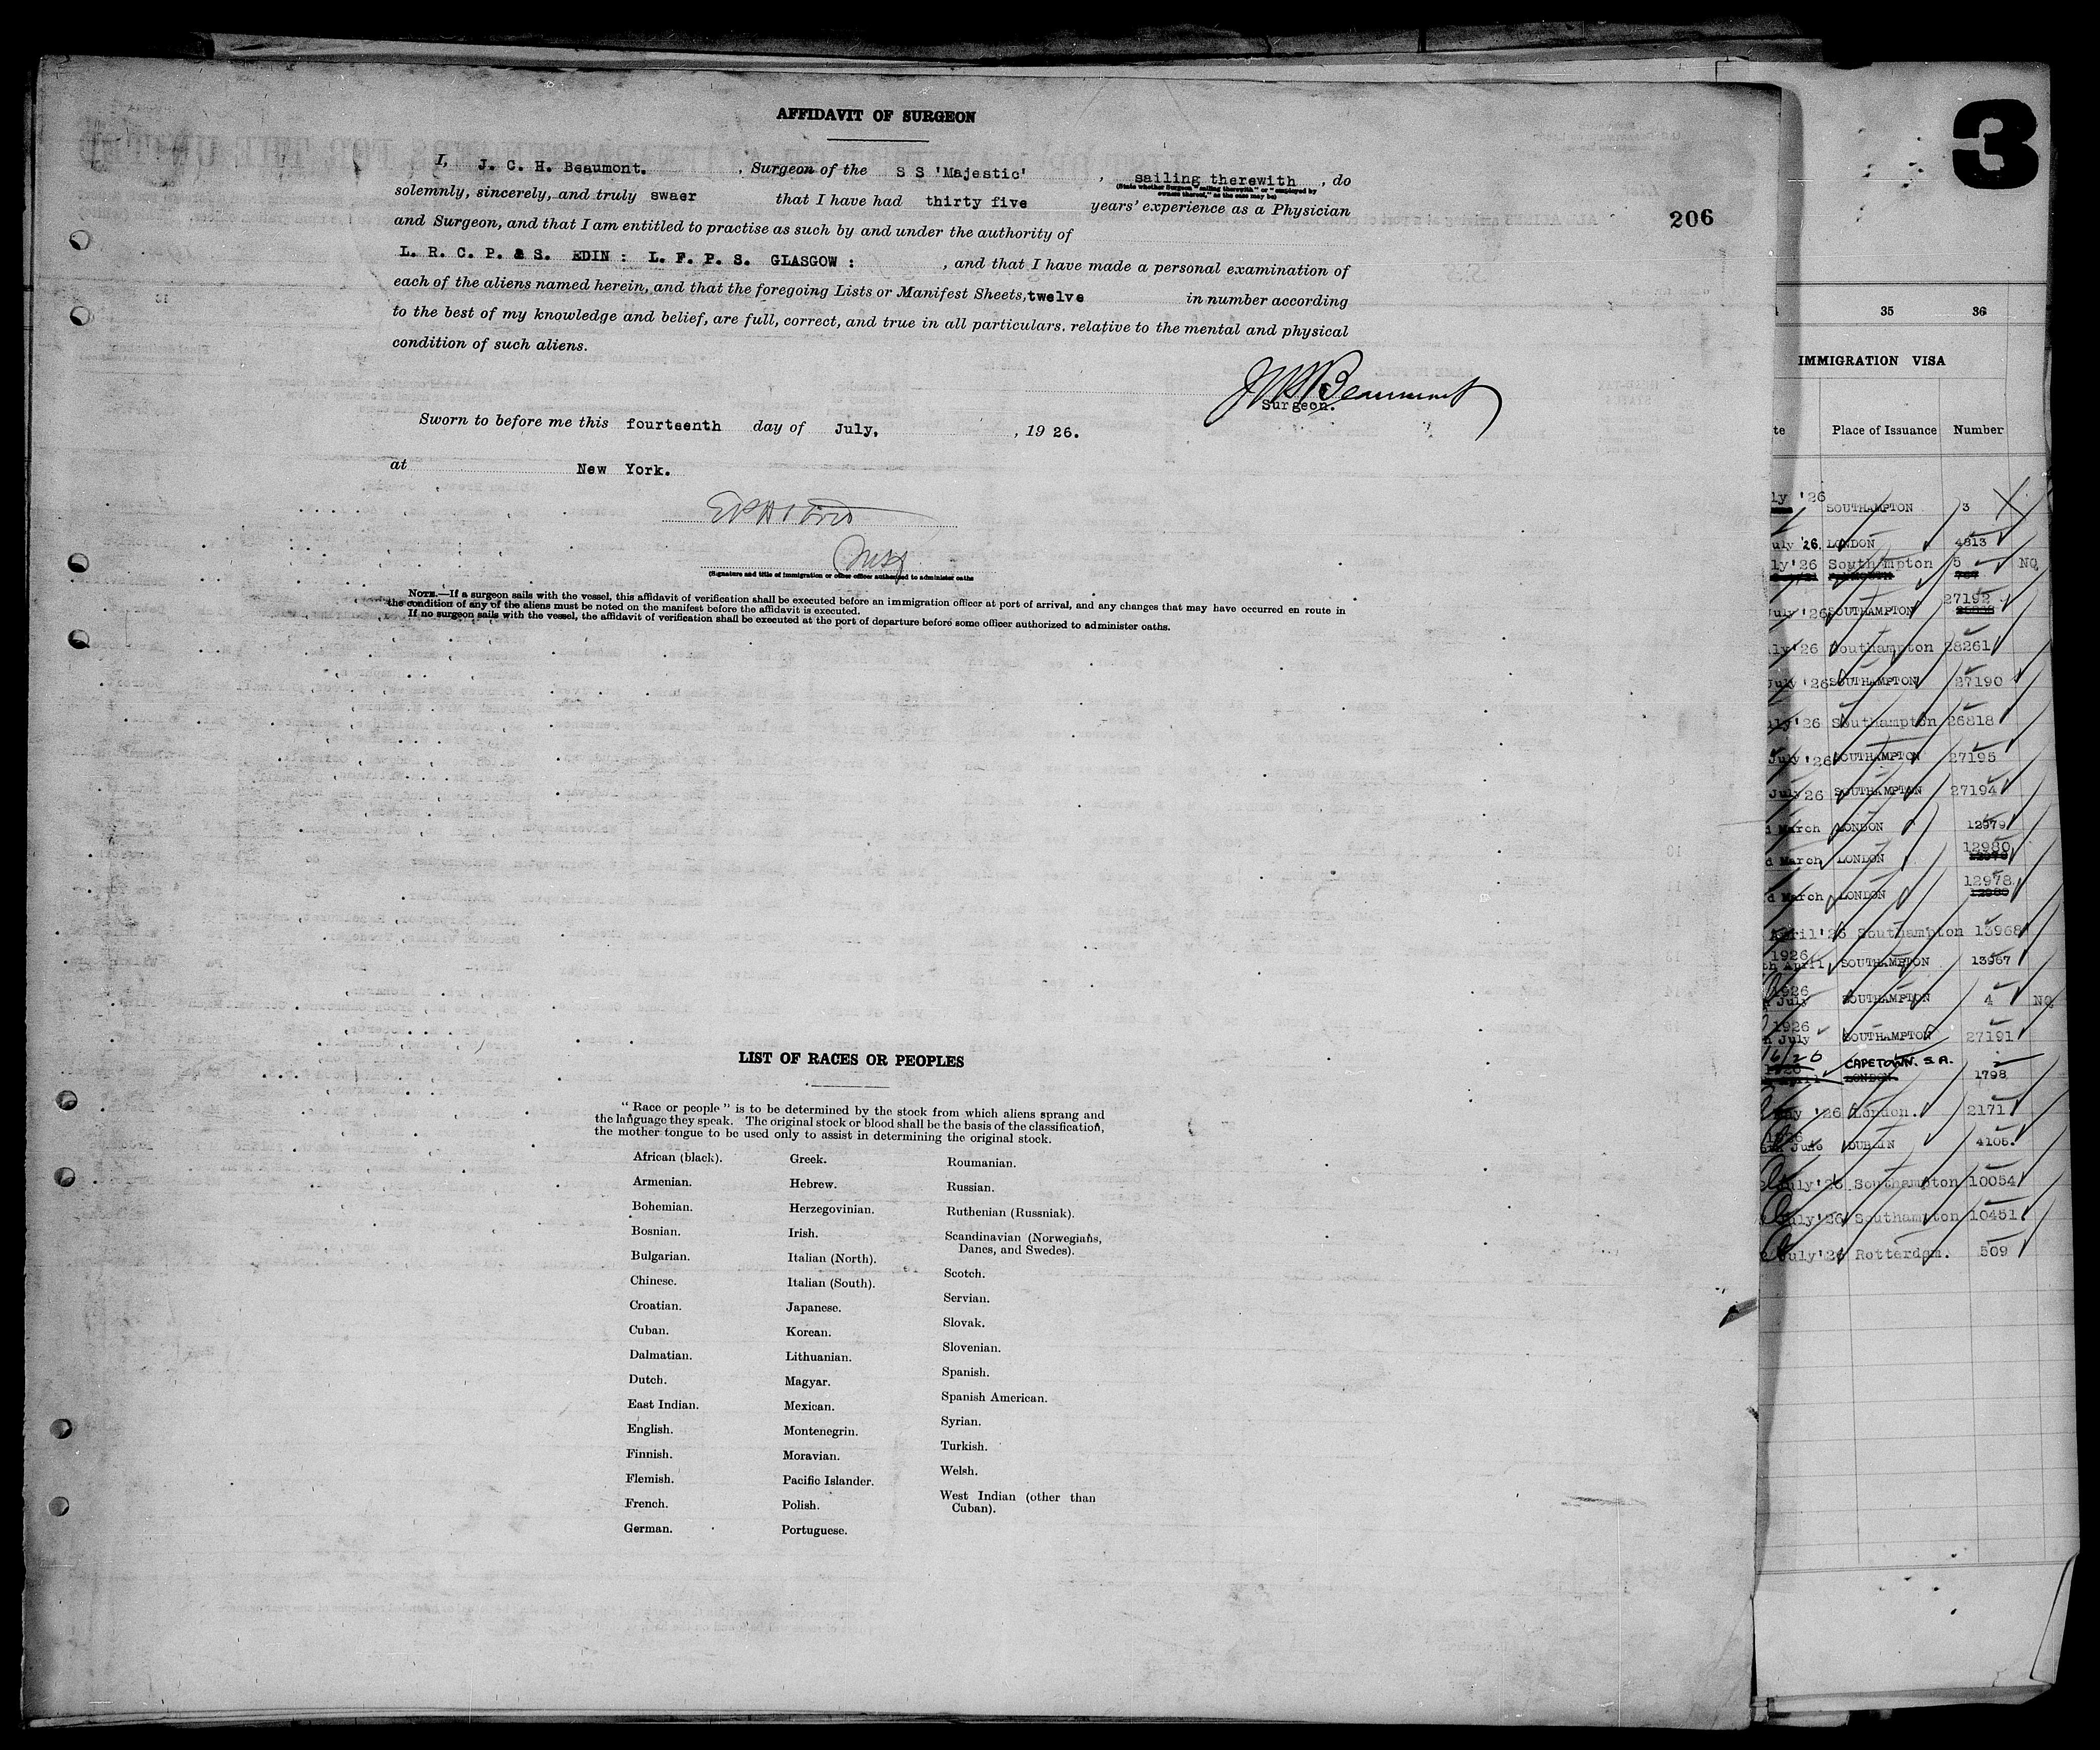 AFFIDAVIT OF SURGEON
I, J. C. H. Beaumont. , Surgeon of the S S 'Majestic' , sailing therewith , do
(State whether Surgeon "sailing therewith" or "employed by
owners thereof," as the case may be)
solemnly, sincerely, and truly swaer that I have had thirty five years' experience as a Physician
and Surgeon, and that I am entitled to practise as such by and under the authority of
L. R. C. P. & S. EDIN : L. F. P. S. GLASGOW : , and that I have made a personal examination of
each of the aliens named herein, and that the foregoing Lists or Manifest Sheets, twelve in number according
to the best of my knowledge and belief, are full, correct, and true in all particulars. relative to the mental and physical
condition of such aliens.
J C H Beaumont
Surgeon.
Sworn to before me this fourteenth day of July, , 19 26.
at New York.
(Signature and title of immigration or other officer authorised to administer oaths
NOTE.—If a surgeon sails with the vessel, this affidavit of verification shall be executed before an immigration officer at port of arrival, and any changes that may have occurred en route in
the condition of any of the aliens must be noted on the manifest before the affidavit is executed.
If no surgeon sails with the vessel, the affidavit of verification shall be executed at the port of departure before some officer authorized to administer oaths.
LIST OF RACES OR PEOPLES
"Race or people" is to be determined by the stock from which aliens sprang and
the language they speak. The original stock or blood shall be the basis of the classification,
the mother tongue to be used only to assist in determining the original stock.
African (black).
Armenian.
Bohemian.
Bosnian.
Bulgarian.
Chinese.
Croatian.
Cuban.
Dalmatian.
Dutch.
East Indian.
English.
Finnish.
Flemish.
French.
German.
Greek.
Hebrew.
Herzegovinian.
Irish.
Italian (North).
Italian (South).
Japanese.
Korean.
Lithuanian.
Magyar.
Mexican.
Montenegrin.
Moravian.
Pacific Islander.
Polish.
Portuguese.
Roumanian.
Russian.
Ruthenian (Russniak).
Scandinavian (Norwegians,
Danes, and Swedes).
Scotch.
Servian.
Slovak.
Slovenian.
Spanish.
Spanish American.
Syrian.
Turkish.
Welsh.
West Indian (other than
Cuban).
206
3
35 36
IMMIGRATION VISA
Place of Issuance Number
'26 SOUTHAMPTON 3
'26. LONDON 4813
'26 Southampton 5 NQ
27192
'26 SOUTHAMPTON
'26 Southampton 28261
July '26 SOUTHAMPTON 27190
'26 Southampton 26818
July '26 SOUTHAMPTON 27195
July 26 SOUTHAMPTON 27194
March LONDON 12979
March LONDON 12980
March LONDON 12978
April '26 Southampton 13968
1926
April SOUTHAMPTON 13967
1926
July SOUTHAMPTON 4 NQ
1926
July SOUTHAMPTON 27191
CAPETOWN. S.A.
LONDON. 1798
May '26 London. 2171
June DUBLIN 4105.
July '26 Southampton 10054
July '26 Southampton 10451
July '26 Rotterdam. 509